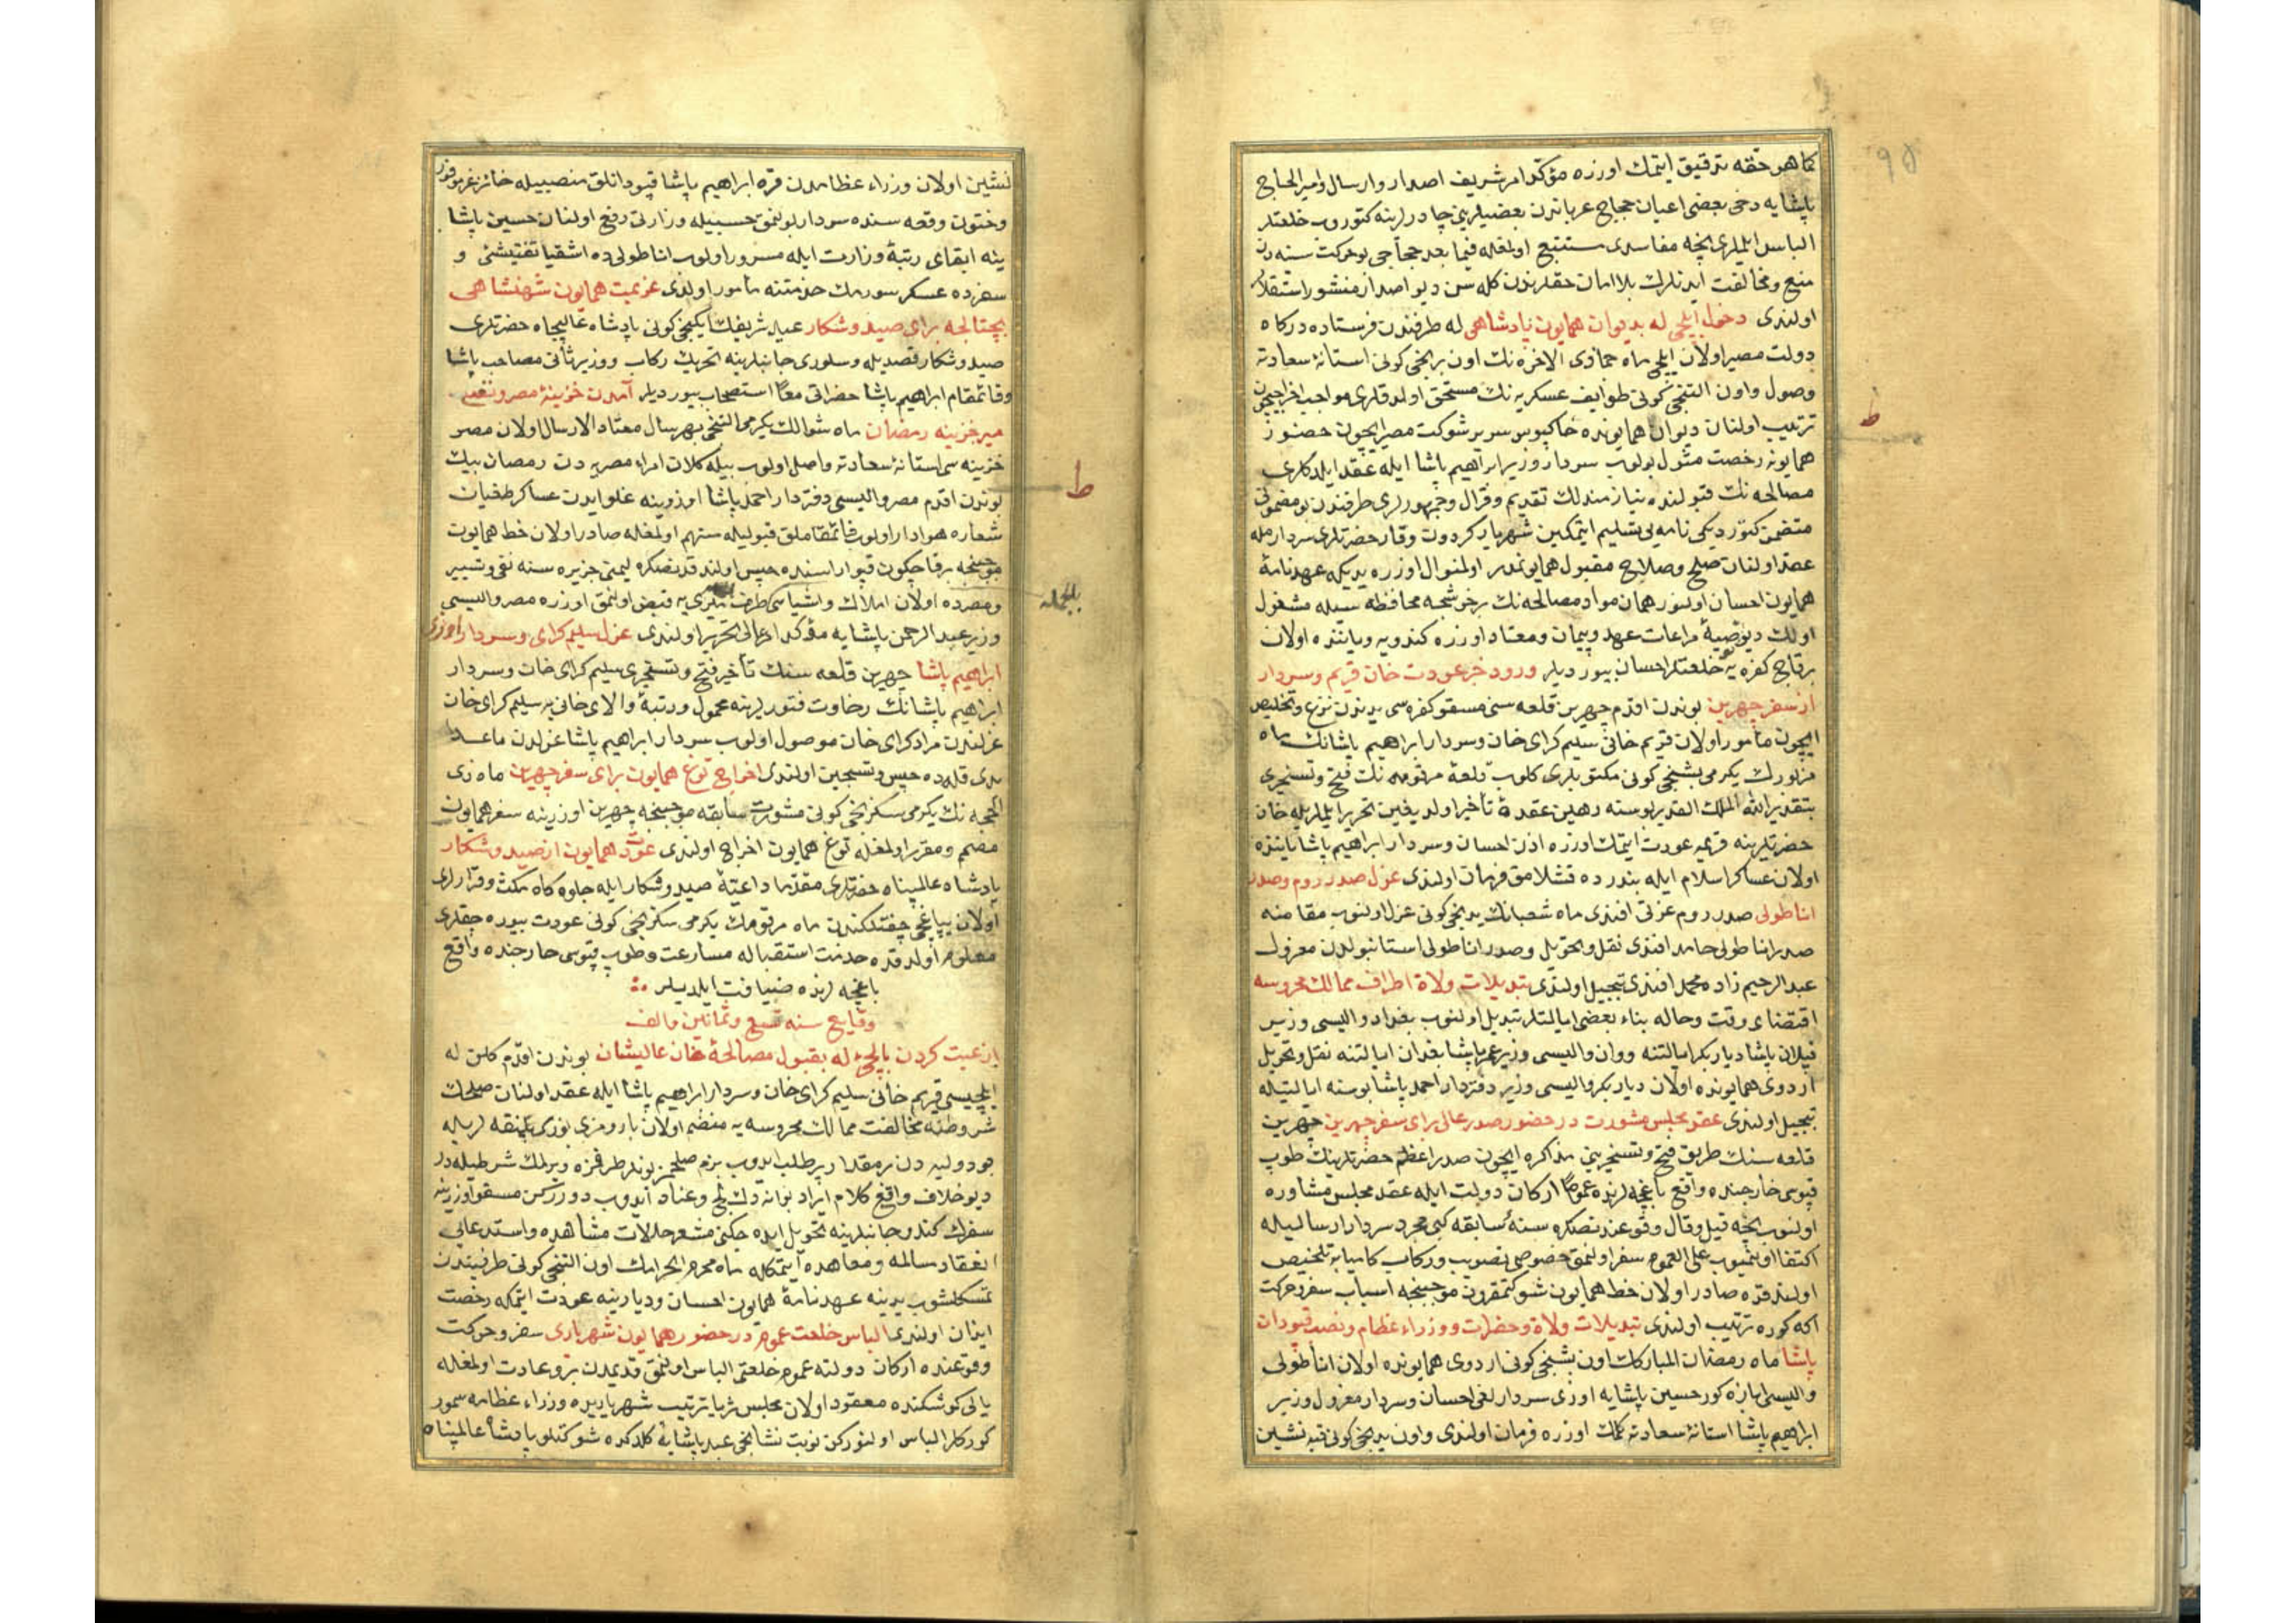 كما هو حقه تدقيق ايتمك اوزره مؤكد امر شريف اصدار وارسال وامير الحاج
پاشايه دخى بعضى اعيان حجاج عرباندن بعضيلرينى چادرلرينه كتوروب خلعتلر
الباس ايلملرى نيجه مفاسدى مستتبع اولمغله فيما بعد حجاجى بو حركت سنه دن
منع ومخالفت ايدنلرك بلا امان حقلرندن كله سن ديو اصدار منشور استقلال
اولندى دخول ايلچى له بديوان همايون پادشاهى له طرفندن فرستاده دركاه
دولت مصير اولان ايلچى ماه جمادى الاخره نك اون برنجى كونى استانۀ سعادته
وصول واون التنجى كونى طوايف عسكريه نك مستحق اولدقلرى مواجب اخراجيچون
ترتيب اولنان ديوان همايونده خاكپوس سرير شوكت مصير ايچون حضور
همايونه رخصت مثول بولوب سردار وزير ابراهيم پاشا ايله عقد ايلدكلرى
مصالحه نك قبولنده نيازمندلك تقديم وقرال وجمهورلرى طرفندن بو مضمونى
متضمن كتورديكى نامه يى تسليم ايتمكين شهريار كردون وقار حضرتلرى سردارمله
عقد اولنان صلح وصلاح مقبول همايونمدر اولمنوال اوزره يديكه عهدنامۀ
همايون احسان اولنور همان مواد مصالحه نك برخوشجه محافظه سيله مشغول
اولك ديو توصيۀ مراعات عهد وپيمان ومعتاد اوزره كندويه وياننده اولان
برقاچ كفره يه خلعتلر احسان بيورديلر ورود خبر عودت خان قريم وسردار
از سفر چهرين بوندن اقدم چهرين قلعه سنى مسقو كفره سى يدندن نزع وتخليص
ايچون مأمور اولان قريم خانى سليم كراى خان وسردار ابراهيم پاشانك ماه
مزبورك يكرمى بشنجى كونى مكتوبلرى كلوب قلعۀ مرقومه نك فتح وتسخيرى
بتقدير الله الملك القدير بوسنه رهين عقدۀ تأخير اولديغين تحرير ايلملريله خان
حضرتلرينه قريمه عودت ايتمك اوزره اذن احسان وسردار ابراهيم پاشا ياننده
اولان عساكر اسلام ايله بندرده قشلامق فرمان اولندى عزل صدر روم وصدر
اناطولى صدر روم عزتى افندى ماه شعبانك يدنجى كونى عزل اولنوب مقامنه
صدر اناطولى حامد افندى نقل وتحويل وصدر اناطولى استانبولدن معزول
عبد الرحيم زاده محمد افندى تبجيل اولندى تبديلات ولاة اطراف ممالك محروسه
اقتضاى وقت وحاله بناء بعضى ايالتلر تبديل اولنوب بغداد واليسى وزير
قپلان پاشا ديار بكر ايالتنه ووان واليسى وزير عمر پاشا بغداد ايالتنه نقل وتحويل
اردوى همايونده اولان ديار بكر واليسى وزير دفتردار احمد پاشا بوسنه ايالتيله
تبجيل اولندى عقد مجلس مشورت در حضور صدر عالى براى سفر چهرين چهرين
قلعه سنك طريق فتح وتسخيرينى مذاكره ايچون صدر اعظم حضرتلرينك طوپ
قپوسى خارجنده واقع باغچه لرنده عموما اركان دولت ايله عقد مجلس مشاوره
اولنوب نيجه قيل وقال وقوعندنصكره سنۀ سابقه كبى مجرد سردار ارساليله
اكتفا اولنميوب على العموم سفر اولنمق خصوصى تصويب وركاب كاميابه تلخيص
اولندقده صادر اولان خط همايون شوكتمقرون موجبنجه اسباب سفر وحركت
اكه كوره ترتيب اولندى تبديلات ولاة وحضرات ووزراء عظام ونصب قپودان
پاشا ماه رمضان المباركك اون بشنجى كونى اردوى همايونده اولان اناطولى
واليسى ابازه كور حسين پاشايه اوزى سردارلغى احسان وسردار معزول وزير
ابراهيم پاشا استانۀ سعادته كلمك اوزره فرمان اولندى واون يدنجى كونى قبه نشين
ط
نشين اولان وزراء عظامدن قره ابراهيم پاشا قپودانلق منصبيله حائز
وختون وقعه سنده سردار بولنمق حسبيله وزارتى رفع اولنان حسين پاشا
ينه ابقاى رتبۀ وزارت ايله مسرور اولوب اناطوليده اشقيا تفتيشنى و
سفرده عسكر سورمك خدمتنه مأمور اولندى عزيمت همايون شهنشاهى
بچتالجه براى صيد وشكار عيد شريفك ايكنجى كونى پادشاه عاليجاه حضرتلرى
صيد وشكار قصديله وسلورى جانبلرينه تحريك ركاب ووزير ثانى مصاحب پاشا
وقائمقام ابراهيم پاشا حضراتى معا استصحاب بيورديلر آمدن خزينۀ مصر ونفى
مير خزينه رمضان ماه شوالك يكرمى التنجى بهر سال معتاد الارسال اولان مصر
خزينه سى استانۀ سعادته واصل اولوب بيله كلان امراء مصريه دن رمضان بيك
بوندن اقدم مصر واليسى دفتردار احمد پاشا اوزرينه غلو ايدن عساكر طغيان
شعاره هوادار اولوب قائمقاملق قبوليله متهم اولمغله صادر اولان خط همايون
موجبنجه برقاچ كون قپوارا سنده حبس اولندقدنصكره ليمنى جزيره سنه نفى وتسيير
ومصرده اولان املاك واشياسى طرف ميرى يه قبض اولنمق اوزره مصر واليسى
وزير عبد الرحمن پاشايه مؤكد امر عالى تحرير اولندى عزل سليم كراى وسردار اوزى
ابراهيم پاشا چهرين قلعه سنك تأخير فتح وتسخيرى سليم كراى خان وسردار
ابراهيم پاشانك رخاوت فتورلرينه محمول ورتبۀ والاى خانى يه سليم كراى خان
عزلندن مراد كراى خان موصول اولوب سردار ابراهيم پاشا عزلدن ماعدا
يدى قلهده حبس وتسجين اولندى اخراج توغ همايون براى سفر چهرين ماه ذى
الحجه نك يكرمى سكزنجى كونى مشورت سابقه موجبنجه چهرين اوزرينه سفر همايون
مصمم ومقرر اولمغله توغ همايون اخراج اولندى عودت همايون از صيد وشكار
پادشاه عالمپناه حضرتلرى مقدما داعيۀ صيد وشكار ايله جلوه كاه مكث وقرارلرى
اولان يپاغچى چفتلكندن ماه مرقومك يكرمى سكزنجى كونى عودت بيوره جقلرى
معلوم اولدقده خدمت استقباله مسارعت وطوپ قپوسى خارجنده واقع
باغچه لرنده ضيافت ايلديلر
وقايع سنه تسع وثمانين والف
رغبت كردن بايلچئ له بقبول مصالحۀ خان عاليشان بوندن اقدم كلن له
ايلچيسى قريم خانى سليم كراى خان وسردار ابراهيم پاشا ايله عقد اولنان صلحك
شروطنه مخالفت ممالك محروسه يه منضم اولان
پودوليه دن بر مقدار ير طلب ايدوب بزم صلحمز بونلر طرفمزه ويرلمك شرطيله در
ديو خلاف واقع كلام ايراد بوانه دك لج وعناد ايدوب دوررسن مسقو اوزرينه
سفرك كندو جانبلرينه تحويل ايده جكنى مشعر حالات مشاهده واستدعاى
انعقاد سالمه ومعاهده ايتمكله ماه محرم الحرامك اون التنجى كونى طرفيندن
تمسكلشوب يدينه عهدنامۀ همايون احسان وديارينه عودت ايتمكه رخصت
ارزان اولندى الباس خلعت عموم در حضور همايون شهريارى سفر وحركت
وقوعنده اركان دولته عموم خلعتى الباس اولنمق قديمدن برو عادت اولمغله
يالى كوشكنده معقود اولان مجلس ثريا ترتيب شهرياريده وزراء عظامه سمور
كوركلر الباس اولنوركن نوبت نشانجى عبدى پاشايه كلدكده شوكتلو پادشاه عالمپناه
ط